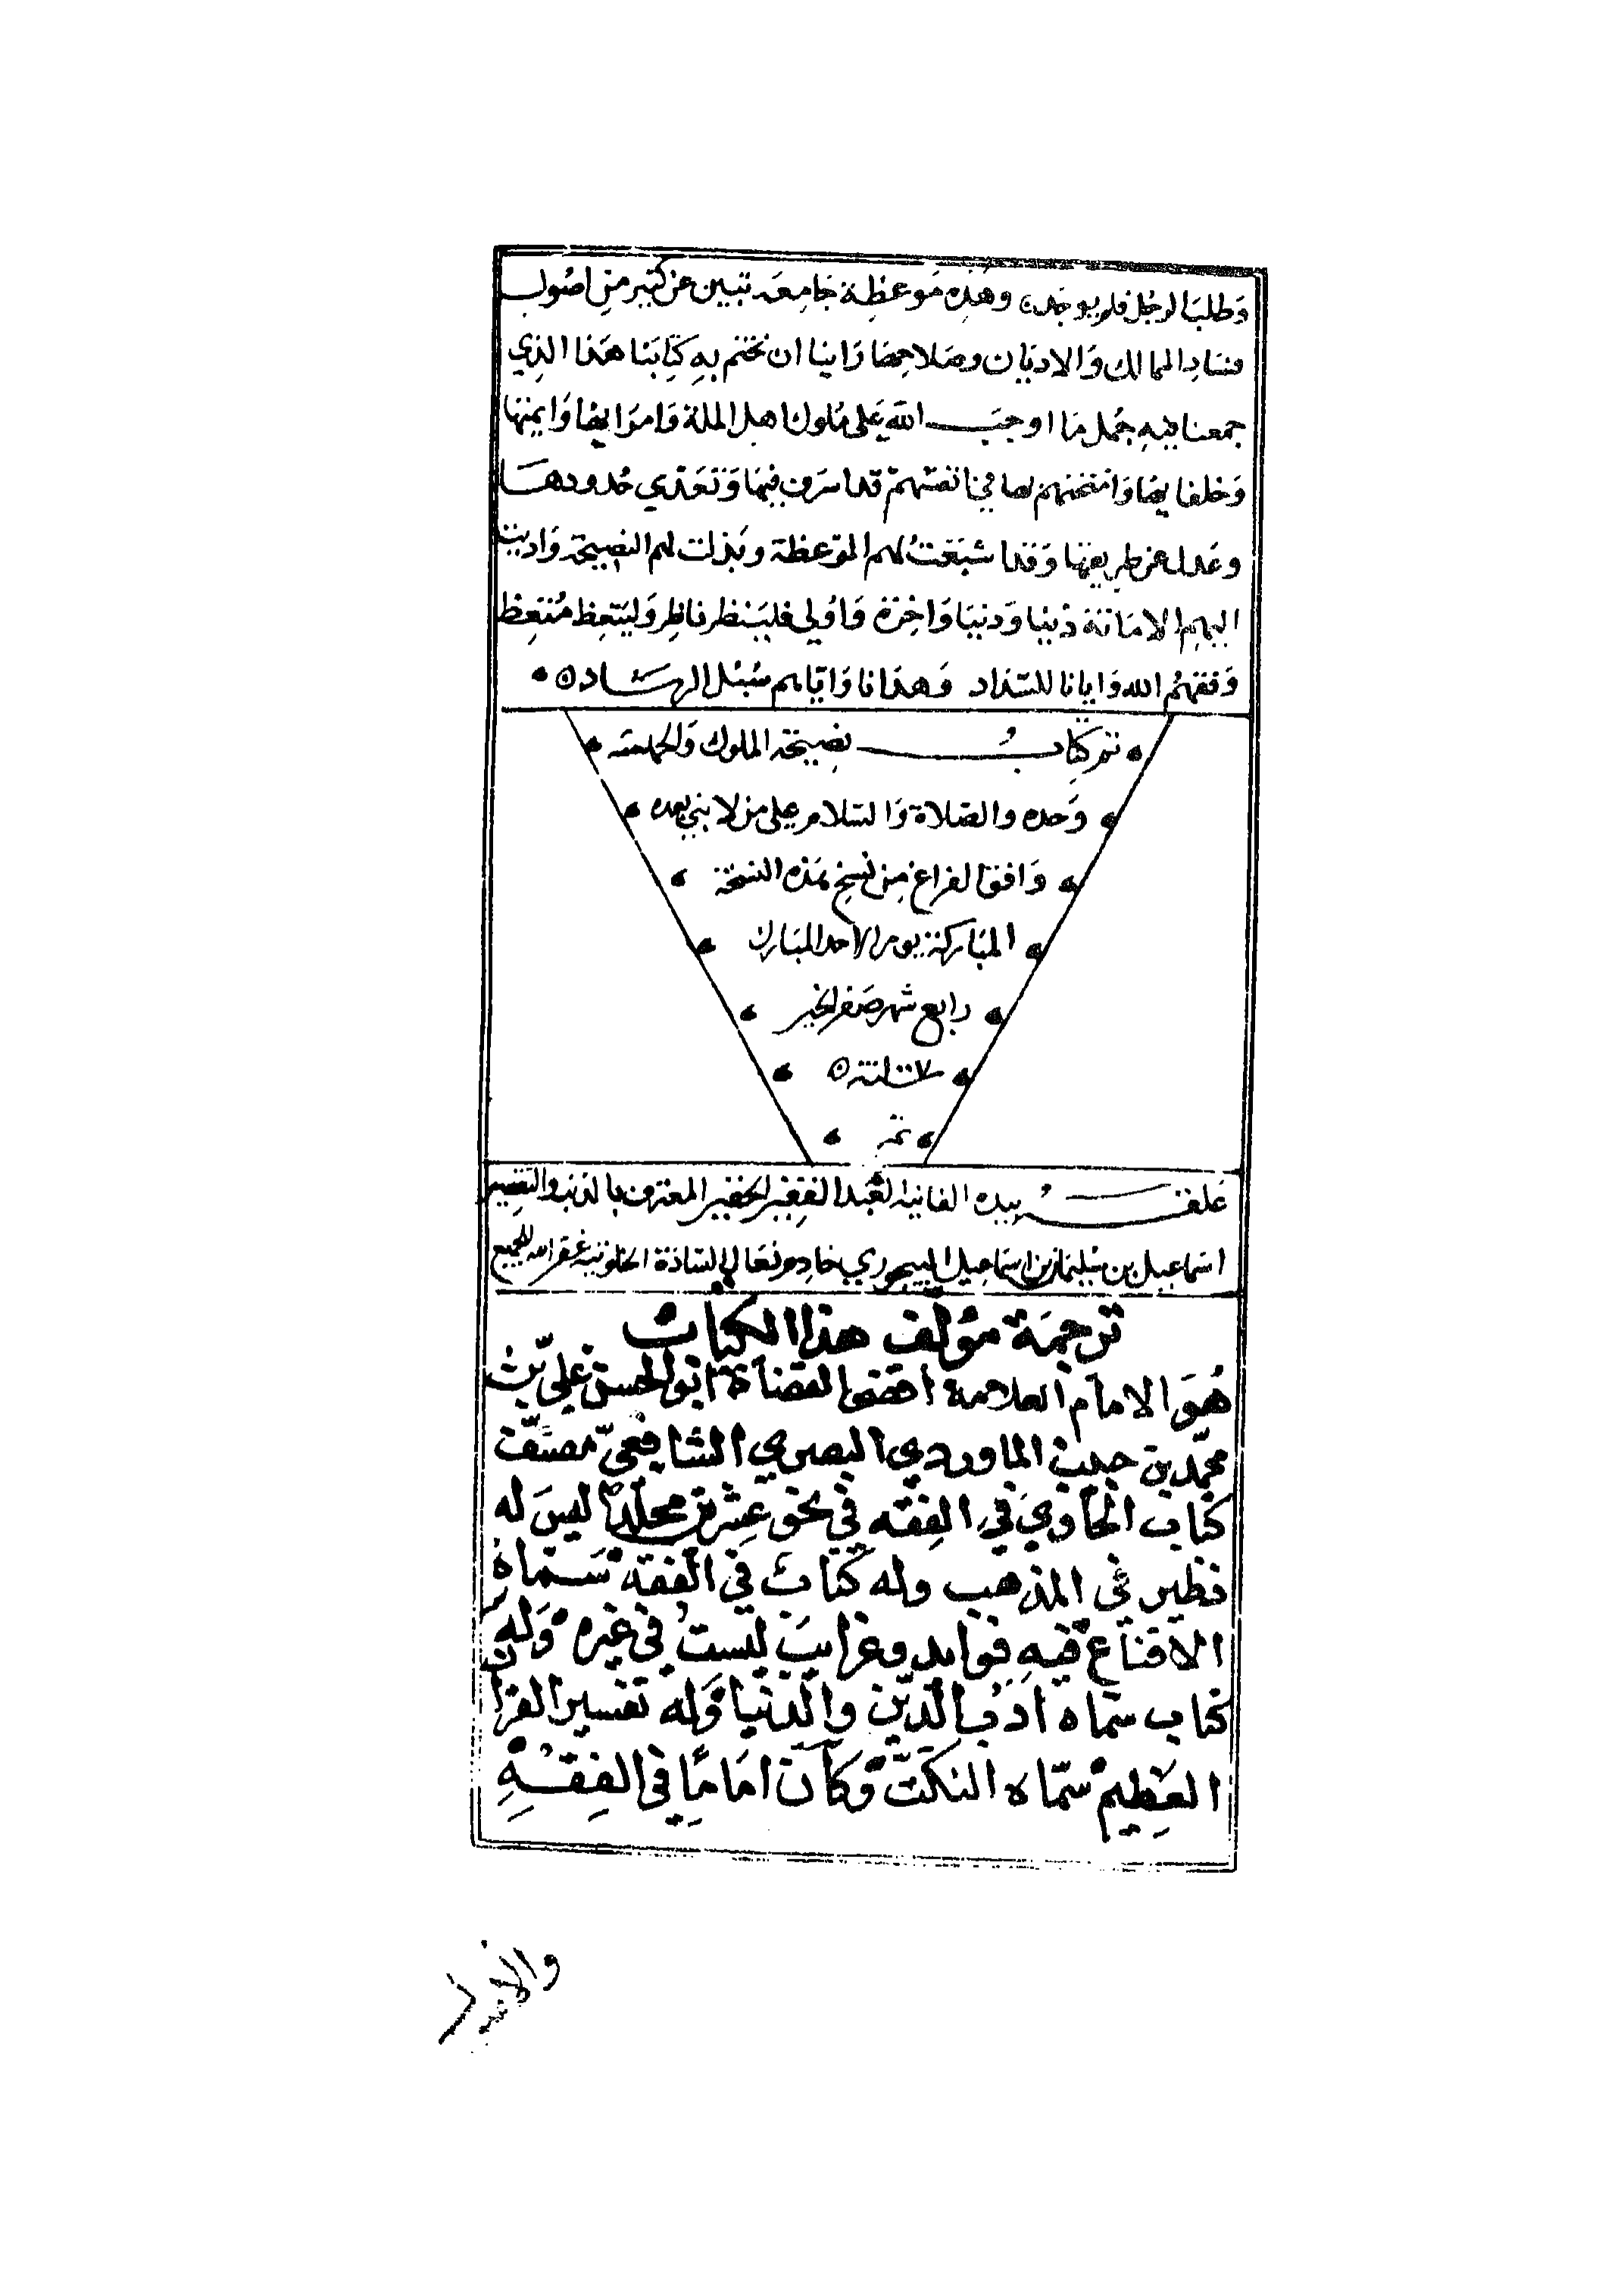 وَطلبَ الرجُل فلم يوجد، وهَذِه مَوعظِة جَامِعَة تبين عَن كثير مِن اصُول
فسَاد الممالك وَالاديَان وصَلاحِهَا رَاينا ان نختم بهِ كتَابَنا هَذا الذِي
جمعنا فيهِ جُمل مَا اوجبَ الله عَلى مُلوك اهل الملة وَامرَايها وَايمتها
وَخلفايها وَامتحنهم بها فِي انفسهم قد اسرَف فِيهَا وَتعَدي حُدودهَا
وعَدل عن طريقتها وَقد اسْبَغتُ لهم الموَعظة وبَذلت لهم النصِيحَة وَاديت
اليهم الامَانة دِينا وَدنيَا وَاخِرَة وَاوُلي فليَنظر ناظِر وَليَتعِظ مُتعِظ
وَفقهمُ الله وَايانا للسَّدَاد وَهدَانا وَايَّاهم سُبُل الرشَاد
تم كِتابُ نصِيحَة الملوك وَالحمد لله
وَحده والصَّلاة وَالسَّلام على من لا نبي بعده
وَافق الفراغ مِن نسخ هَذه النسخة
المبَاركة يوم الاحد المبَارك
رابع شهر صَفر الخير
سنة ١٠٠٧
تم
عَلقهُ بيده الفانية العَبد الفقِير الحقير المعترف بالذنب والتقصِير
اسمَاعيل بن سُليمَان بن اسمَاعيل البيجوري خادم نعَال السَّادَة الخلوتية غفر الله للجميع
ترجمَة مؤلف هذا الكتاب
هُوَ الامام العلامة اقضى القضاة ابو الحسن عَلِيّ بنْ
محمّد بن حبيب الماوردي البصري الشافِعيّ مصنّف
كتاب الحاوي في الفِقه في نحو عِشرين مجلدًا ليسَ له
نظير في المذهب وله كتاب في الفقه سَمّاهُ
الاقناع فيهِ فوايد وغرايبَ ليسَتْ في غيره وَله
كتاب سمّاه ادَبُ الدّين والدنيا وَله تفسير القرآن
العَظِيم سمّاه النكت وَكانَ امَامًا في الفِقْهِ
والاصول